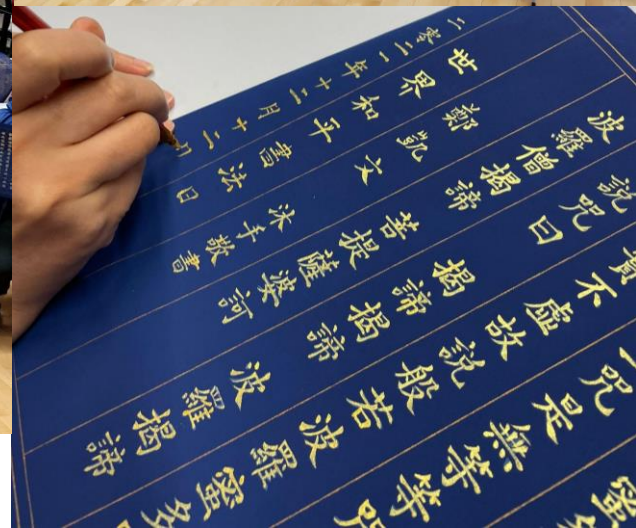 蜜
咒是無等等咒
實不虛故說般若波羅蜜多
說咒曰 揭諦揭諦 波羅揭諦
波羅僧揭諦 菩提薩婆訶
鄭凱文 沐手敬書
世界和平書法日
二零二一年十二月十二日